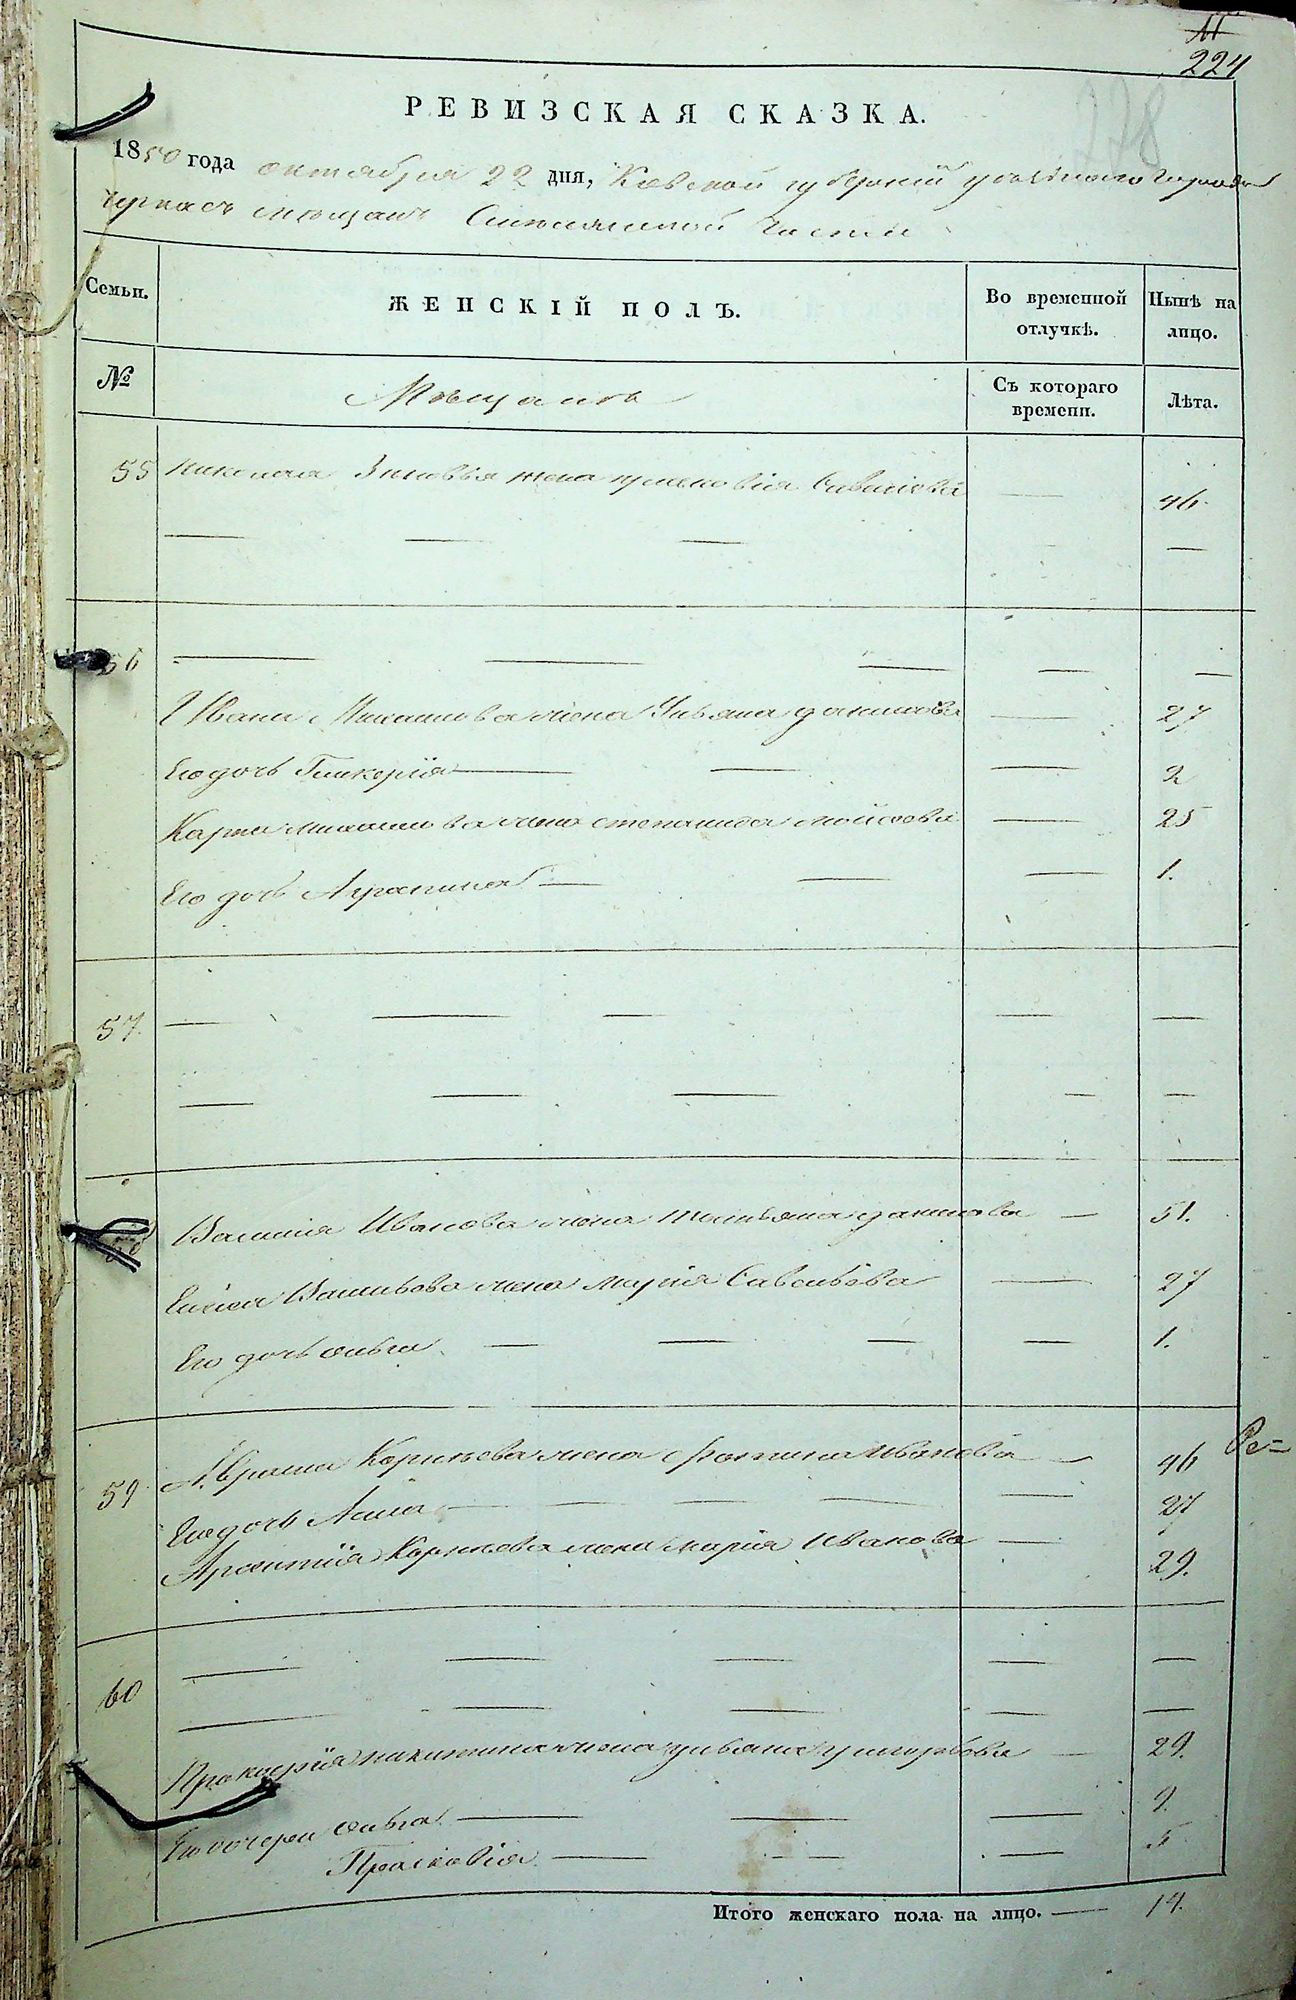 11
224
228
РЕВИЗСКАЯ СКАЗКА.
1850 года октября 22 дня, Кіевской губерніи уезднаго города
Черкасъ мещанъ части
Семьи. ЖЕНСКІЙ ПОЛЪ. Во временной отлучкѣ. Нынѣ на лицо.
№ Мещанъ Съ котораго времени. Лѣта.
55 Николая Зиновья жена Савельева — 46.
— — — —
56 — — — — —
Ивана жена Ульяна Данилова — 27
Его дочь Гликерія — — — 2
Карпа жена Степанида Мойсеева — 25
Его дочь Агрипина — — — 1.
57. — — — — —
— — — — —
58 Василія Иванова жена Татьяна Данилова — 51.
Елисея Васильева жена Марія Савельева — 27
Его дочь Ольга — — — — 1.
59 Аврама Корнѣева жена Фотина Иванова — 46 Ре=
Его дочь Анна — — — — — 27
Арсентія Корнѣева жена Марія Иванова — 29.
60 — — — — —
— — — — —
Прокофія Никитина жена Ульяна Григорьева — 29.
Его дочери Ольга — — — 9.
Прасковія — — — 5
Итого женскаго пола на лицо. — 14.